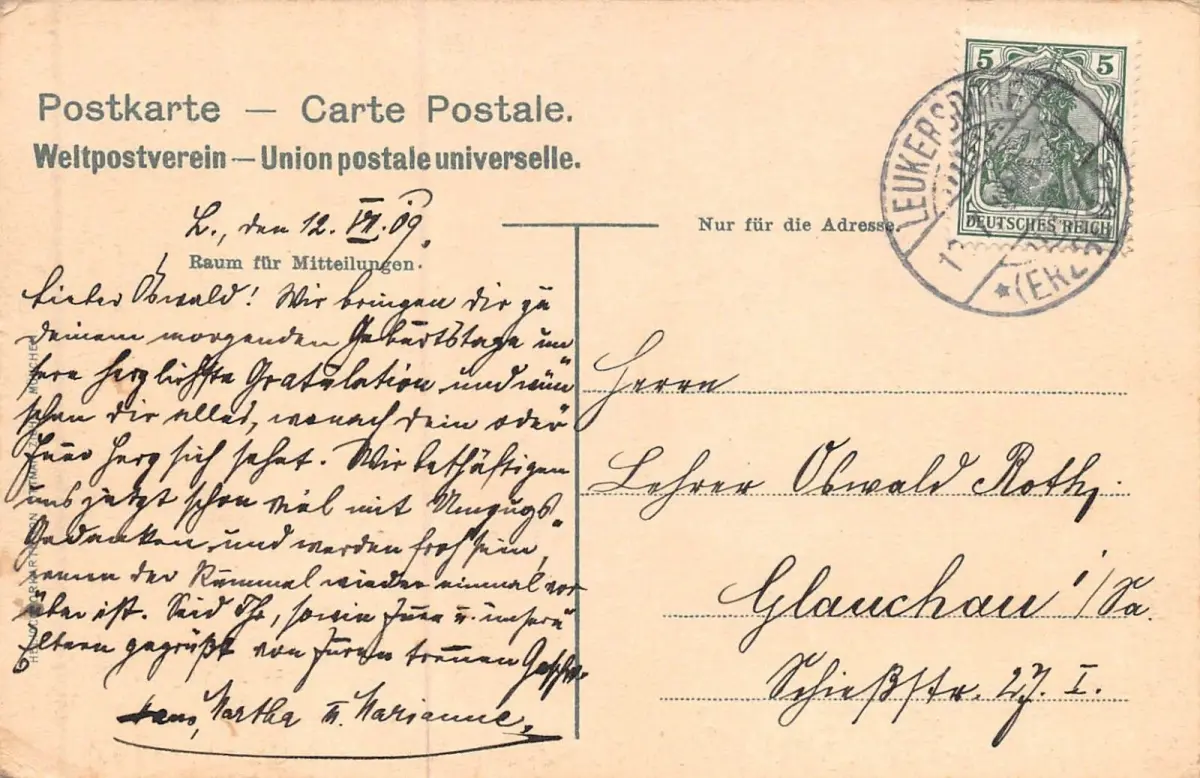 Postkarte — Carte Postale.
Weltpostverein — Union postale universelle.
L., den 12. VII. 09.
Raum für Mitteilungen.
Nur für die Adresse.
5 5
DEUTSCHES REICH
LEUKERSDORF
(ERZ
Lieber Oswald! Wir bringen dir zu
deinem morgenden Geburtstage un
sere herzlichste Gratulation und wün
schen dir alles, wonach dein oder
Euer Herz sich sehnt. Wir beschäftigen
uns jetzt schon viel mit Umzugs-
Gedanken und werden froh sein,
wenn der Rummel wieder einmal vor
über ist. Seid Ihr, sowie Eure u. unsere
Eltern gegrüßt von Euren treuen Geschw.
Hans, Martha u. Marianne.
Herrn
Lehrer Oswald Roth,
Glauchau i/Sa.
Schießstr. 27. I.